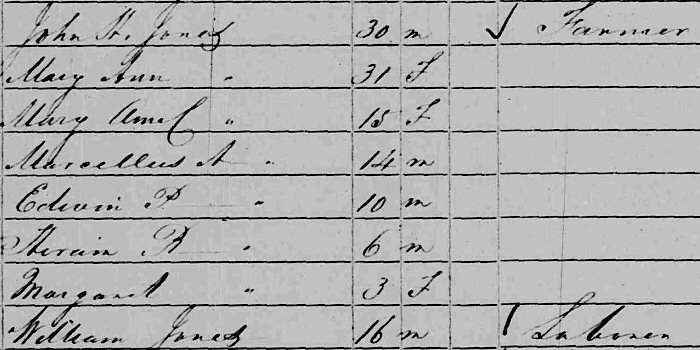 John H. Jones 30 m √ Farmer
Mary Ann " 31 F
Mary Amel " 15 F
Marcellus A " 14 m
Edwin P " 10 m
Hiram R " 6 m
Margaret " 3 F
William Jones 16 m Laborer